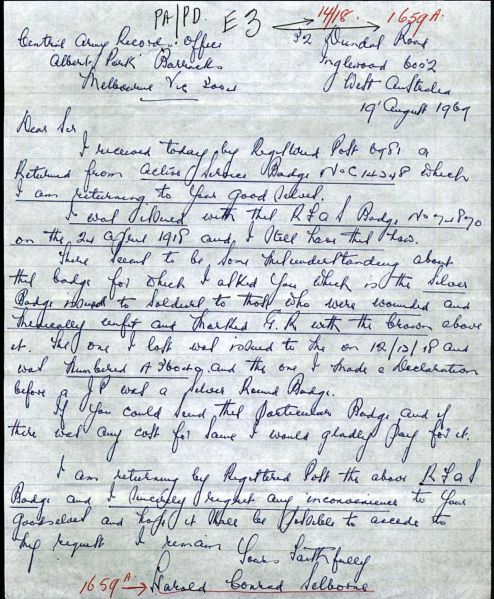 PA/PD. E3 14/18. 1659A.
Central Army Records Office 32 Dundas Road
Albert Park Barracks Inglewood 6052
Melbourne Vic 3004 West Australia
19 August 1969
Dear Sir
I received today by Registered Post 6981 a
Returned from Active Service Badge No C which
I am returning to your good selves.
I was issued with this R F A S Badge No
on the 2nd April 1918 and I still have this now.
There seems to be some misunderstanding about
this badge for which I asked you which is the Silver
Badge issued to Soldiers to those who were wounded and
Medically unfit and marked G. R with the Crown above
it. The one I lost was issued to me on 12/12/18 and
was numbered A and the one I made a Declaration
before a J P was a Silver Round Badge.
If you could send this particular Badge and if
there was any cost for same I would gladly pay for it.
I am returning by Registered Post the above R F A S
Badge and I sincerely regret any inconvenience to your
goodselves and hope it will be possible to accede to
my request I remain
Yours Faithfully
1659A Harold Conrad Selborne